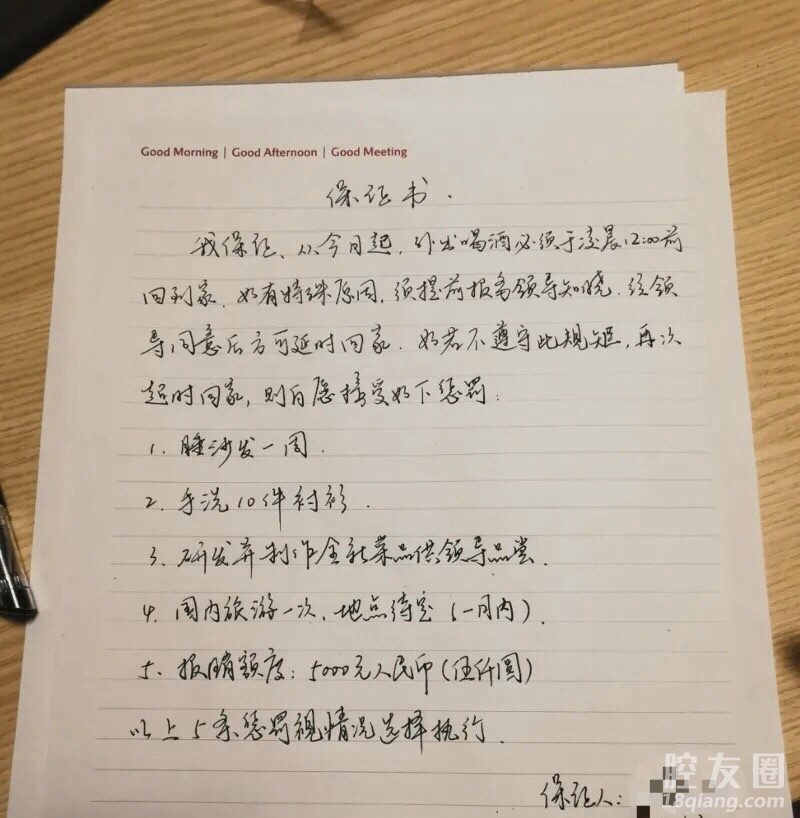 Good Morning | Good Afternoon | Good Meeting
保证书.
我保证、从今日起,外出喝酒必须于凌晨12:00前
回到家.如有特殊原因,须提前报备领导知晓.经领
导同意后方可延时回家.如若不遵守此规矩,再次
超时回家,则自愿接受如下惩罚:
1. 睡沙发一周.
2. 手洗10件衬衫.
3. 研发并制作全新菜品供领导品尝.
4. 国内旅游一次,地点待定(一月内).
5. 报销额度:5000元人民币(伍仟圆)
以上5条惩罚视情况选择执行.
保证人:
腔友圈
18qiang.com